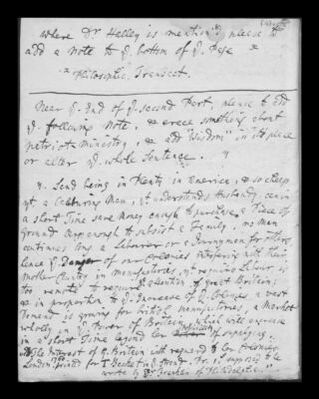 where Dr Halley is mention'd, please to
add a Note to ye bottom of ye Page *
* Philosophic. Transact.
Near ye End of ye second Part, please to add
ye following Note, & erase something about
patriot ministry, & add "Wisdom" in its place
or alter ye whole Sentence. "
". Land being in Plenty in America, & so cheap
yt a labouring Man, yt understands Husbandry, can in
a short Time save Money enough to purchase a Piece of
Ground enough to subsist a Family, no Man
continues long a Labourer or a Journeyman for others,
hence ye Danger of our Colonies interfering with their
mother Country in manufactures, yt requiring Labour is
too remote to require ye attention of great Britain;
& in proportion to ye Increase of ye Colonies a vast
Demand is growing for british manufactures, a Market
wholly in ye Power of Britain, which will increase
in a short Time beyond her of supplying.
The Interest of G. Britain with regard to her Colonies
London printed for T. Becket in ye Strand. supposed to be
wrote by Dr Franklin of Philadelphia."